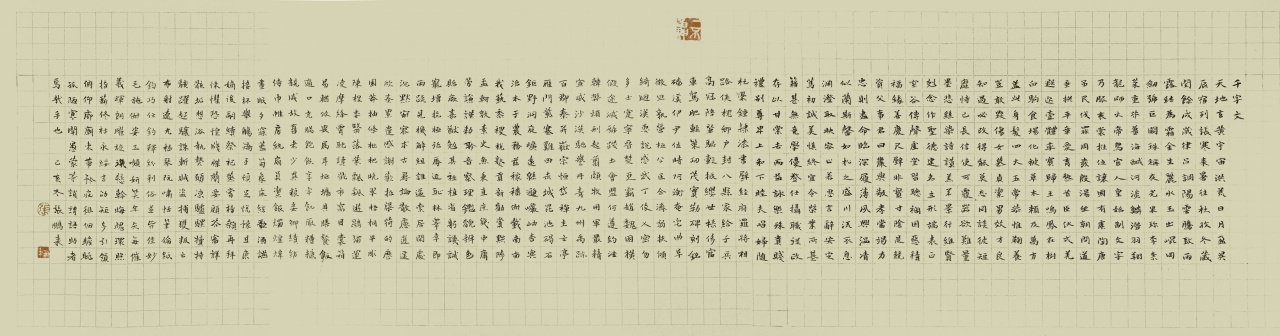 千字文
天地玄黃宇宙洪荒日月盈昃
辰宿列張寒來暑往秋收冬藏
閏餘成歲律呂調陽雲騰致雨
露結為霜金生麗水玉出崑岡
劍號巨闕珠稱夜光果珍李柰
菜重芥薑海鹹河淡鱗潛羽翔
龍師火帝鳥官人皇始制文字
乃服衣裳推位讓國有虞陶唐
弔民伐罪周發殷湯坐朝問道
垂拱平章愛育黎首臣伏戎羌
遐邇壹體率賓歸王鳴鳳在樹
白駒食場化被草木賴及萬方
蓋此身髮四大五常恭惟鞠養
豈敢毀傷女慕貞絜男效才良
知過必改得能莫忘罔談彼短
靡恃己長信使可覆器欲難量
墨悲絲染詩讚羔羊景行維賢
剋念作聖德建名立形端表正
空谷傳聲虛堂習聽禍因惡積
福緣善慶尺璧非寶寸陰是競
資父事君曰嚴與敬孝當竭力
忠則盡命臨深履薄夙興溫凊
似蘭斯馨如松之盛川流不息
淵澄取映容止若思言辭安定
篤初誠美慎終宜令榮業所基
籍甚無竟學優登仕攝職從政
存以甘棠去而益詠樂殊貴賤
禮別尊卑上和下睦夫唱婦隨
杜稾鍾隸漆書壁經府羅將相
路俠槐卿戶封八縣家給千兵
高冠陪輦驅轂振纓世祿侈富
車駕肥輕策功茂實勒碑刻銘
磻溪伊尹佐時阿衡奄宅曲阜
微旦孰營桓公匡合濟弱扶傾
綺迴漢惠說感武丁俊乂密勿
多士寔寧晉楚更霸趙魏困橫
假途滅虢踐土會盟何遵約法
韓弊煩刑起翦頗牧用軍最精
宣威沙漠馳譽丹青九州禹跡
百郡秦并嶽宗恒岱禪主云亭
雁門紫塞雞田赤城昆池碣石
鉅野洞庭曠遠綿邈巖岫杳冥
治本於農務茲稼穡俶載南畝
我藝黍稷稅熟貢新勸賞黜陟
孟軻敦素史魚秉直庶幾中庸
勞謙謹敕聆音察理鑑貌辨色
貽厥嘉猷勉其祗植省躬譏誡
寵增抗極殆辱近恥林皋幸即
兩疏見機解組誰逼索居閒處
沉默寂寥求古尋論散慮逍遙
欣奏累遣慼謝歡招渠荷的歷
園莽抽條枇杷晚翠梧桐早凋
陳根委翳落葉飄颻遊鵾獨運
凌摩絳霄耽讀翫市寓目囊箱
易輶攸畏屬耳垣牆具膳餐飯
適口充腸飽飫烹宰飢厭糟糠
親戚故舊老少異糧妾御績紡
侍巾帷房紈扇圓潔銀燭煒煌
晝眠夕寐藍筍象床弦歌酒讌
接杯舉觴矯手頓足悅豫且康
嫡後嗣續祭祀烝嘗稽顙再拜
悚懼恐惶牋牒簡要顧答審詳
骸垢想浴執熱願涼驢騾犢特
駭躍超驤誅斬賊盜捕獲叛亡
布射遼丸嵇琴阮嘯恬筆倫紙
鈞巧任釣釋紛利俗並皆佳妙
毛施淑姿工顰妍笑年矢每催
羲暉朗曜璇璣懸斡晦魄環照
指薪修祜永綏吉劭矩步引領
俯仰廊廟束帶矜莊徘徊瞻眺
孤陋寡聞愚蒙等誚謂語助者
焉哉乎也 己亥冬 張鵬